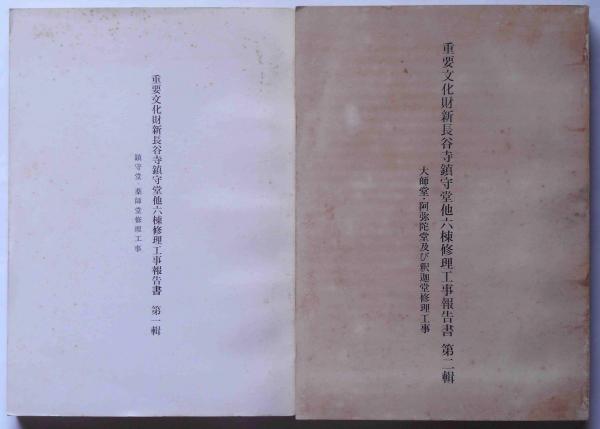 重要文化財新長谷寺鎮守堂他六棟修理工事報告書 第一輯
鎮守堂 薬師堂修理工事
重要文化財新長谷寺鎮守堂他六棟修理工事報告書 第二輯
大師堂・阿弥陀堂及び釈迦堂修理工事